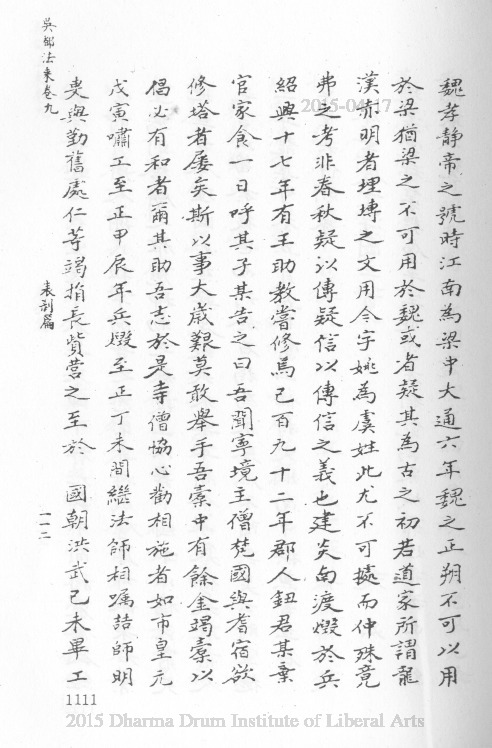 吳都法乘卷九
表刹篇
一一二
魏孝静帝之號時江南為梁中大通六年魏之正朔不可以用
於梁猶梁之不可用於魏或者疑其為古之初若道家所謂龍
漢赤明者埋塼之文用今字姚為虞姓此尤不可據而仲殊竟
弗之考非春秋疑以傳疑信以傳信之義也建炎南渡燬於兵
紹興十七年有王助教嘗修焉已百九十二年郡人鈕君某棄
官家食一日呼其子某告之曰吾聞寧境王僧楚國與耆宿欲
修塔者屢矣斯以事大歲艱莫敢舉手吾橐中有餘金竭橐以
倡必有和者爾其助吾志於是寺僧協心勸相施者如市皇元
戊寅嘯工至正甲辰年兵燬至正丁未間繼法師相囑喆師明
叟與勤舊處仁等竭指長貲营之至於 國朝洪武己未畢工
1111
2015-04-17
2015 Dharma Drum Institute of Liberal Arts